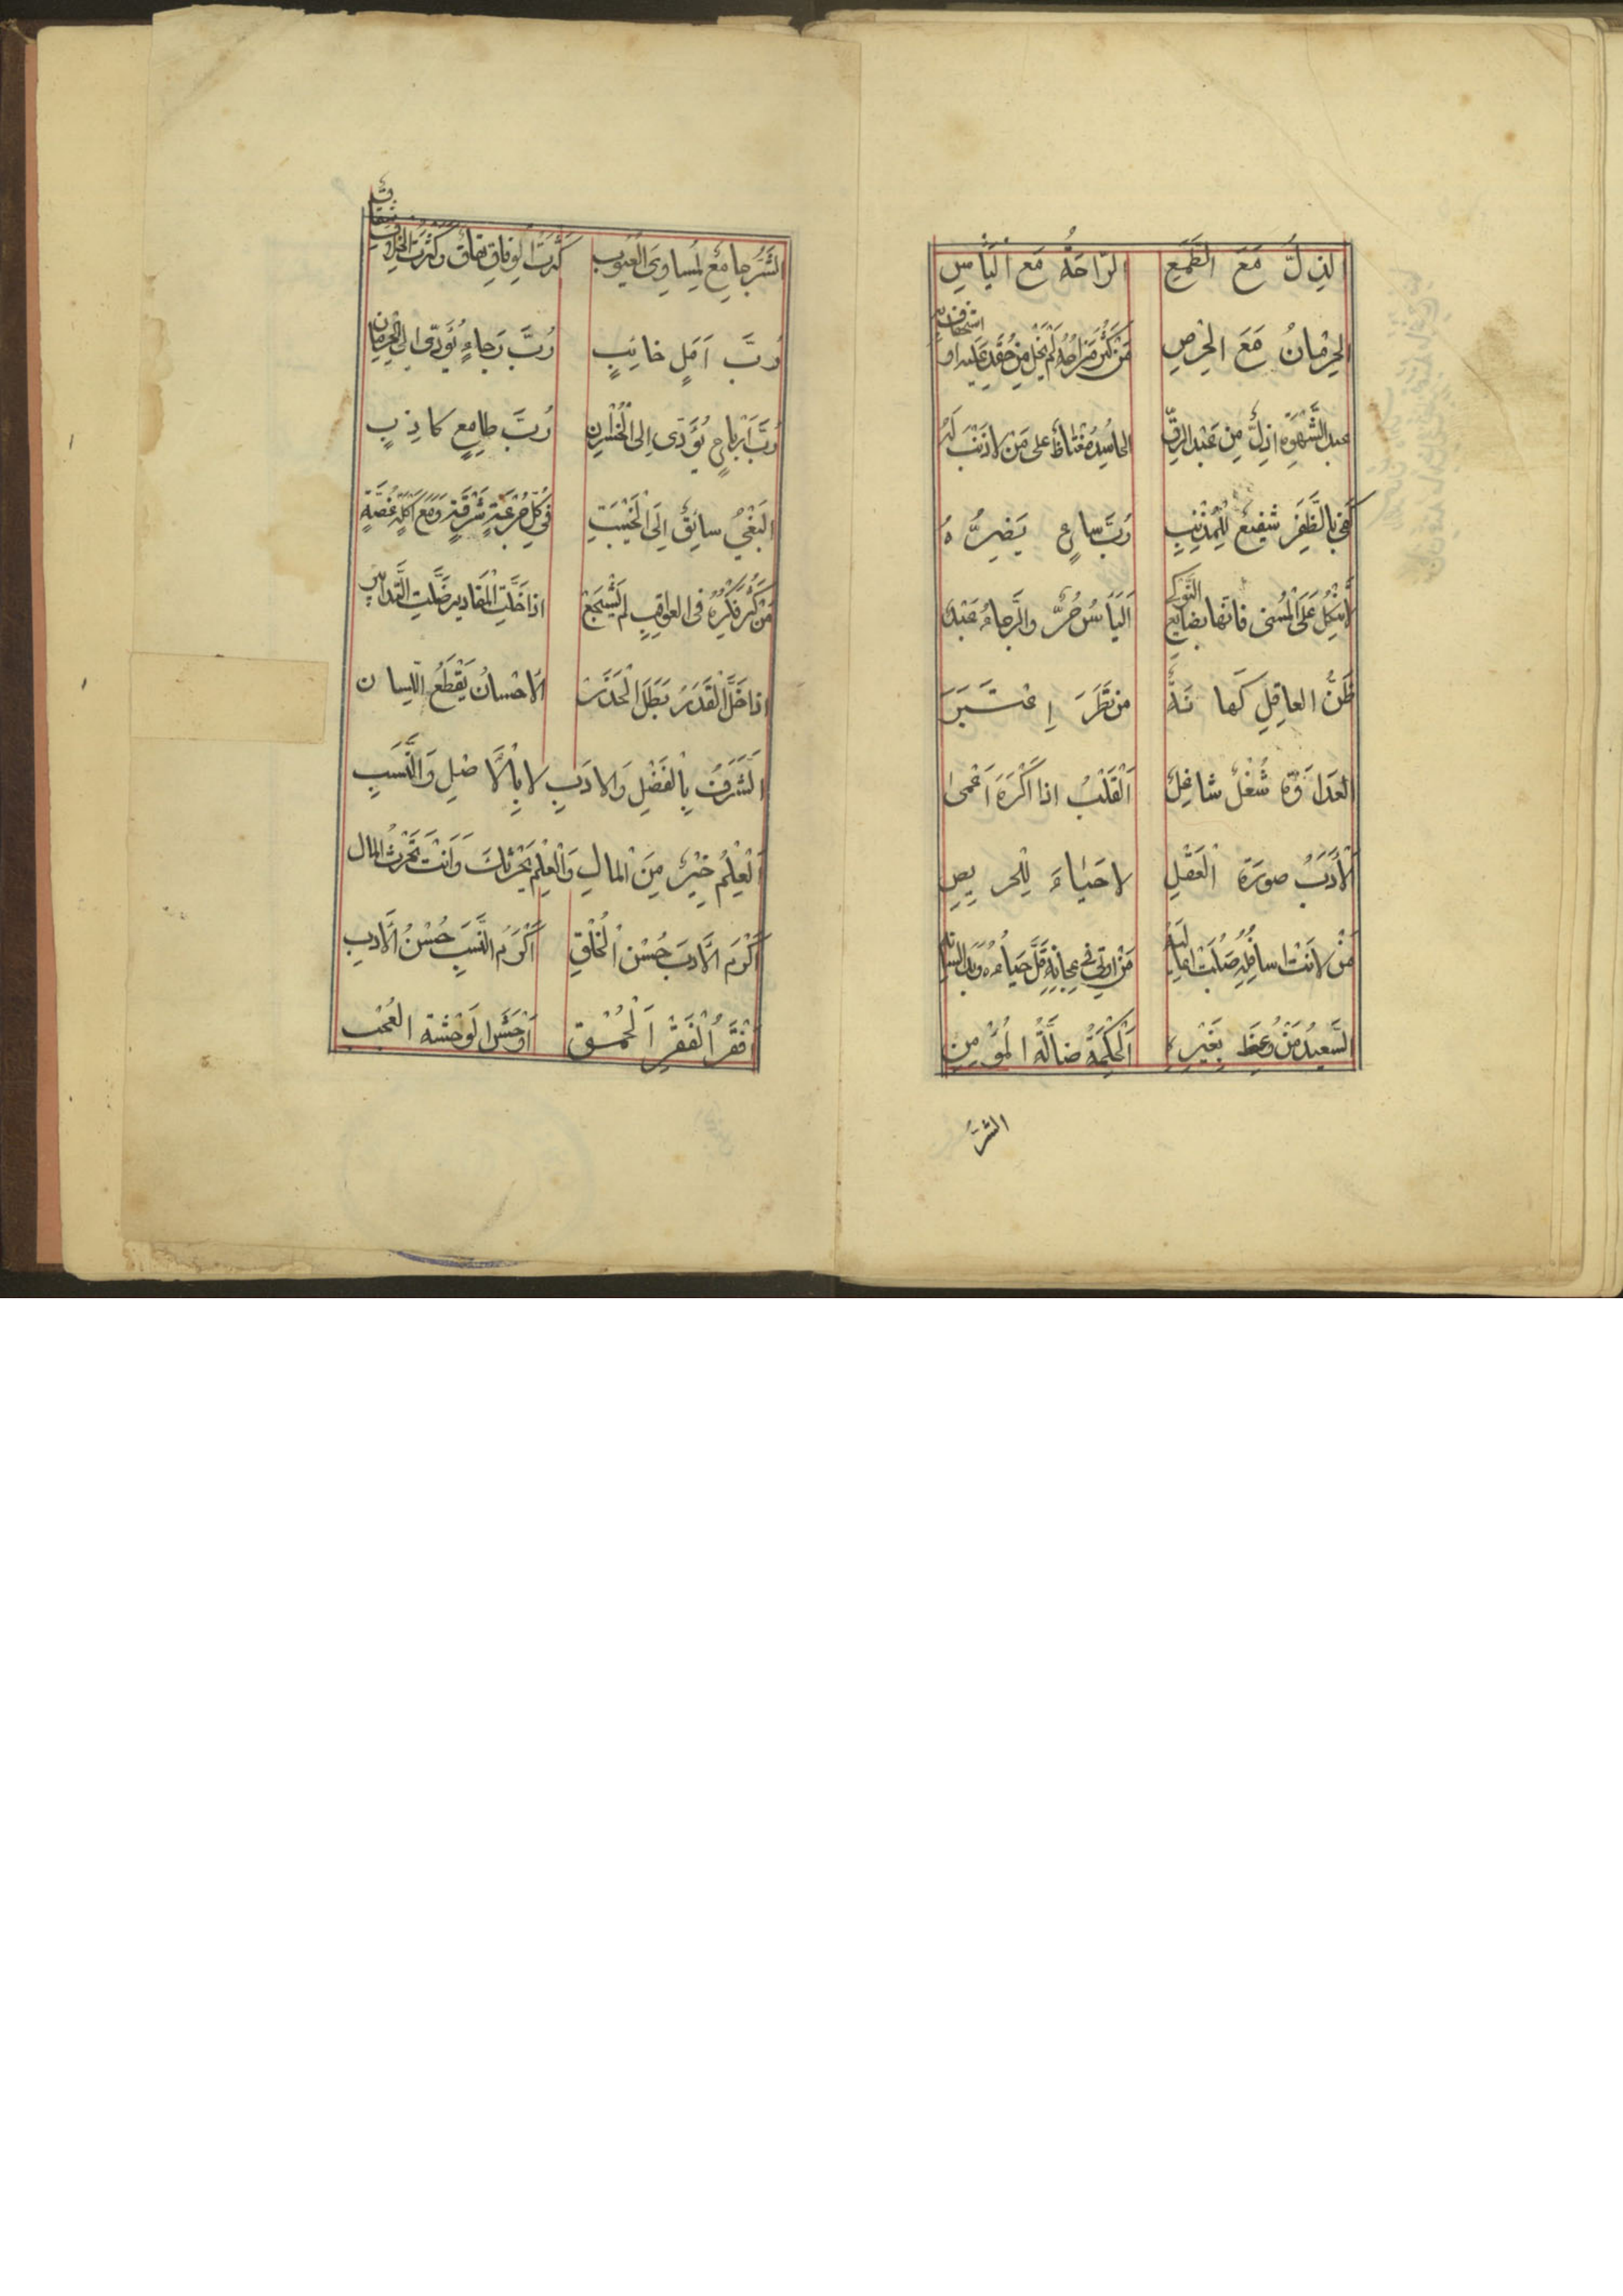 الذِلُّ مَعَ الطَّمَعِ الرّاحَةُ مَعَ الْيَأْسِ
الحِرْمانُ مَعَ الْحِرْصِ مَنْ كَثُرَ مِزاحُهُ لَمْ يَخْلُ مِنْ حُقْدٍ عَلَيه او استخفاف به
عبد الشَّهْوَةِ اذلُّ مِنْ عَبْد الرِقِّ الحاسِدُ مُغْتاظٌ على مَنْ لا ذَنْبَ لَهُ
كَفى بِالظَّفِرِ شفيعٌ لِلْمُذْنِبِ رُبَّ ساعٍ يَضِرُّهُ
لا تَتَّكِلْ عَلَى الْمُنى فانّها بضايع النَّوكى اَلْيَأْسُ حُرٌّ والرَّجاءُ عَبْدٌ
ظَنُّ العاقِلِ كَهانَةٌ مَنْ نَظَرَ اِعْتَبَرَ
العَداوَةُ شُغْلٌ شاغِلٌ اَلْقَلْبُ اذا اُكْرِهَ اَعْمى
الْاَدَبُ صورَةُ الْعَقْلِ لا حَياءَ لِلْحريصِ
مَنْ لانَتْ اسافِلُهُ صَلُبَتْ اعاليه مَنْ اوتي في عِجانِهِ قَلَّ حَياءُهُ وبذا لسانه
السَّعيدُ مَنْ وُعِظَ بِغَيْرِه اَلْحِكْمَةُ ضالَّةُ الْمُؤْمِنِ
الشرّ
الشَّرُّ جامِعٌ لِمَساوِى الْعُيُوبِ كَثْرَتُ الْوِفاقِ نِفاقٌ وَكَثْرَتُ الْخِلافِ شِقاقٌ
رُبَّ اَمَلٍ خائِبٍ رُبَّ رَجاءٍ يُؤَدّى اِلَى الْحِرْمانِ
رُبَّ اَرْباحٍ يُؤَدّى اِلى الْخُسْرانِ رُبَّ طامِعٍ كاذِبٍ
الْبَغْيُ سائِقٌ اِلَى الْخَيْبَتِ في كُلِّ جُرْعَةٍ شَرْقَةٌ وَمَعَ اُكْلَةٍ غُصَّةٌ
مَنْ كَثُرَ فِكْرُهُ فى العواقِبِ لم يَشْجَعْ اذا حَلَّتِ الْمَقادير ضَلَّتِ التَّدابير
اذا حَلَّ الْقَدَرُ بَطَلَ الْحَذَرُ الاحْسانُ يَقْطَعُ اللّسان
الشَّرَفُ بِالْفَضْلِ وَالادَبِ لا بِالْاصْلِ وَالنَّسَبِ
اَلْعِلْمُ خَيْرٌ مِنَ الْمالِ وَالْعِلْمُ يَحْرُثُكَ وَاَنْتَ تَحْرُثُ المال
اَكْرَمُ الْاَدَبَ حُسْنُ الْخُلْقِ اَكْرَمُ النَّسَبَ حُسْنُ الْاَدَبِ
اَفْقَرُ الْفَقْرِ اَلْحُمْقُ اَوْحَشُ الوَحْشَةِ العُجْبُ